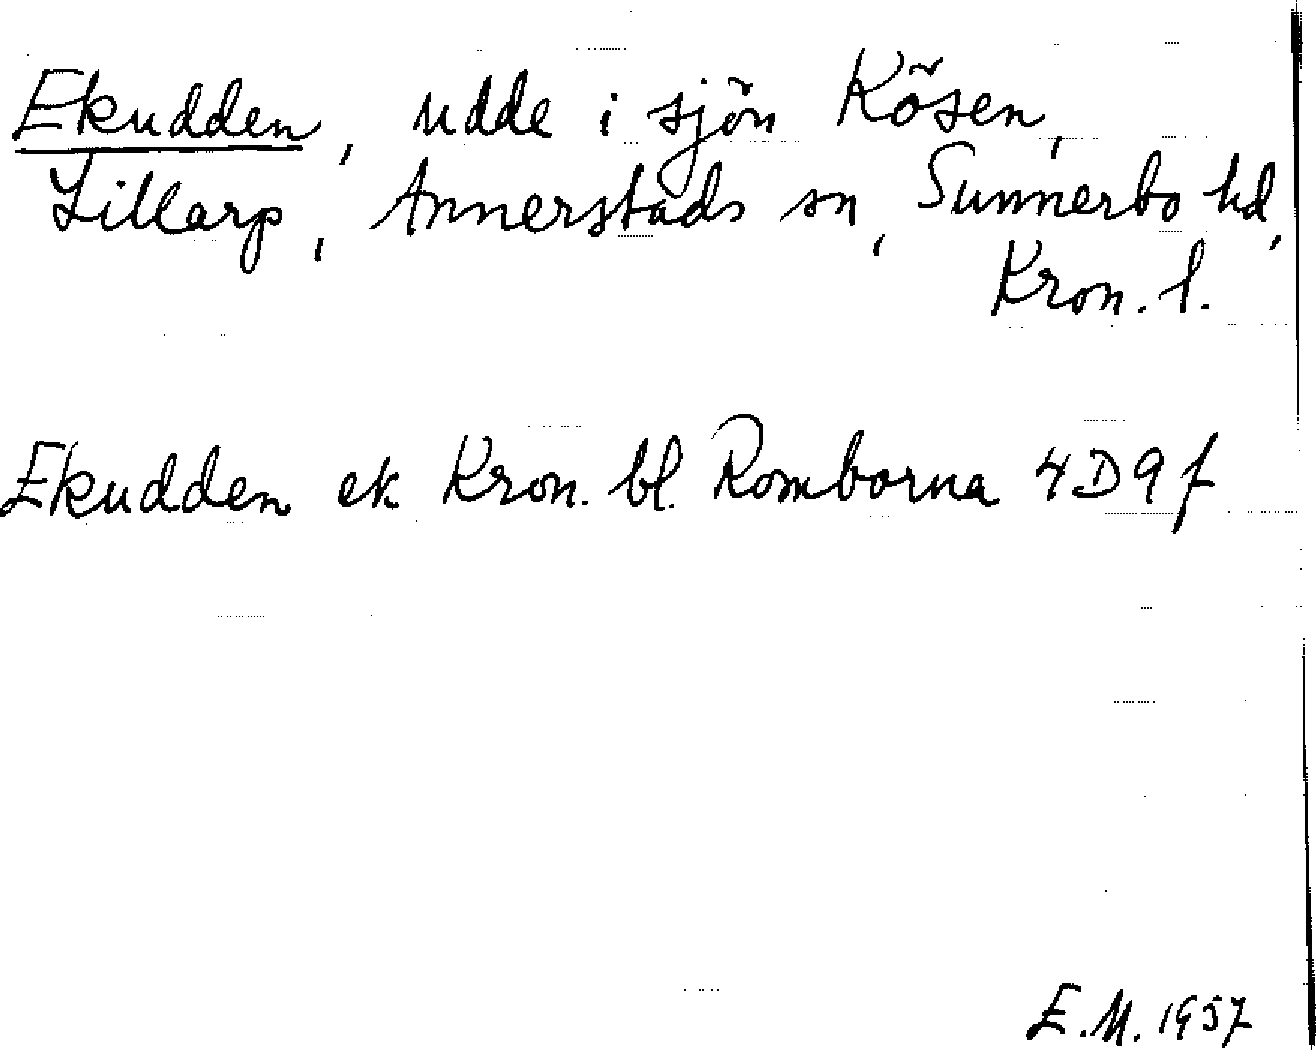 Ekudden, udde i sjön Kösen,
Lillarp, Annerstads sn, Sunnerbo hd,
Kron. l.
Ekudden ek Kron. bl. Romborna 4D9f
E.M. 1957